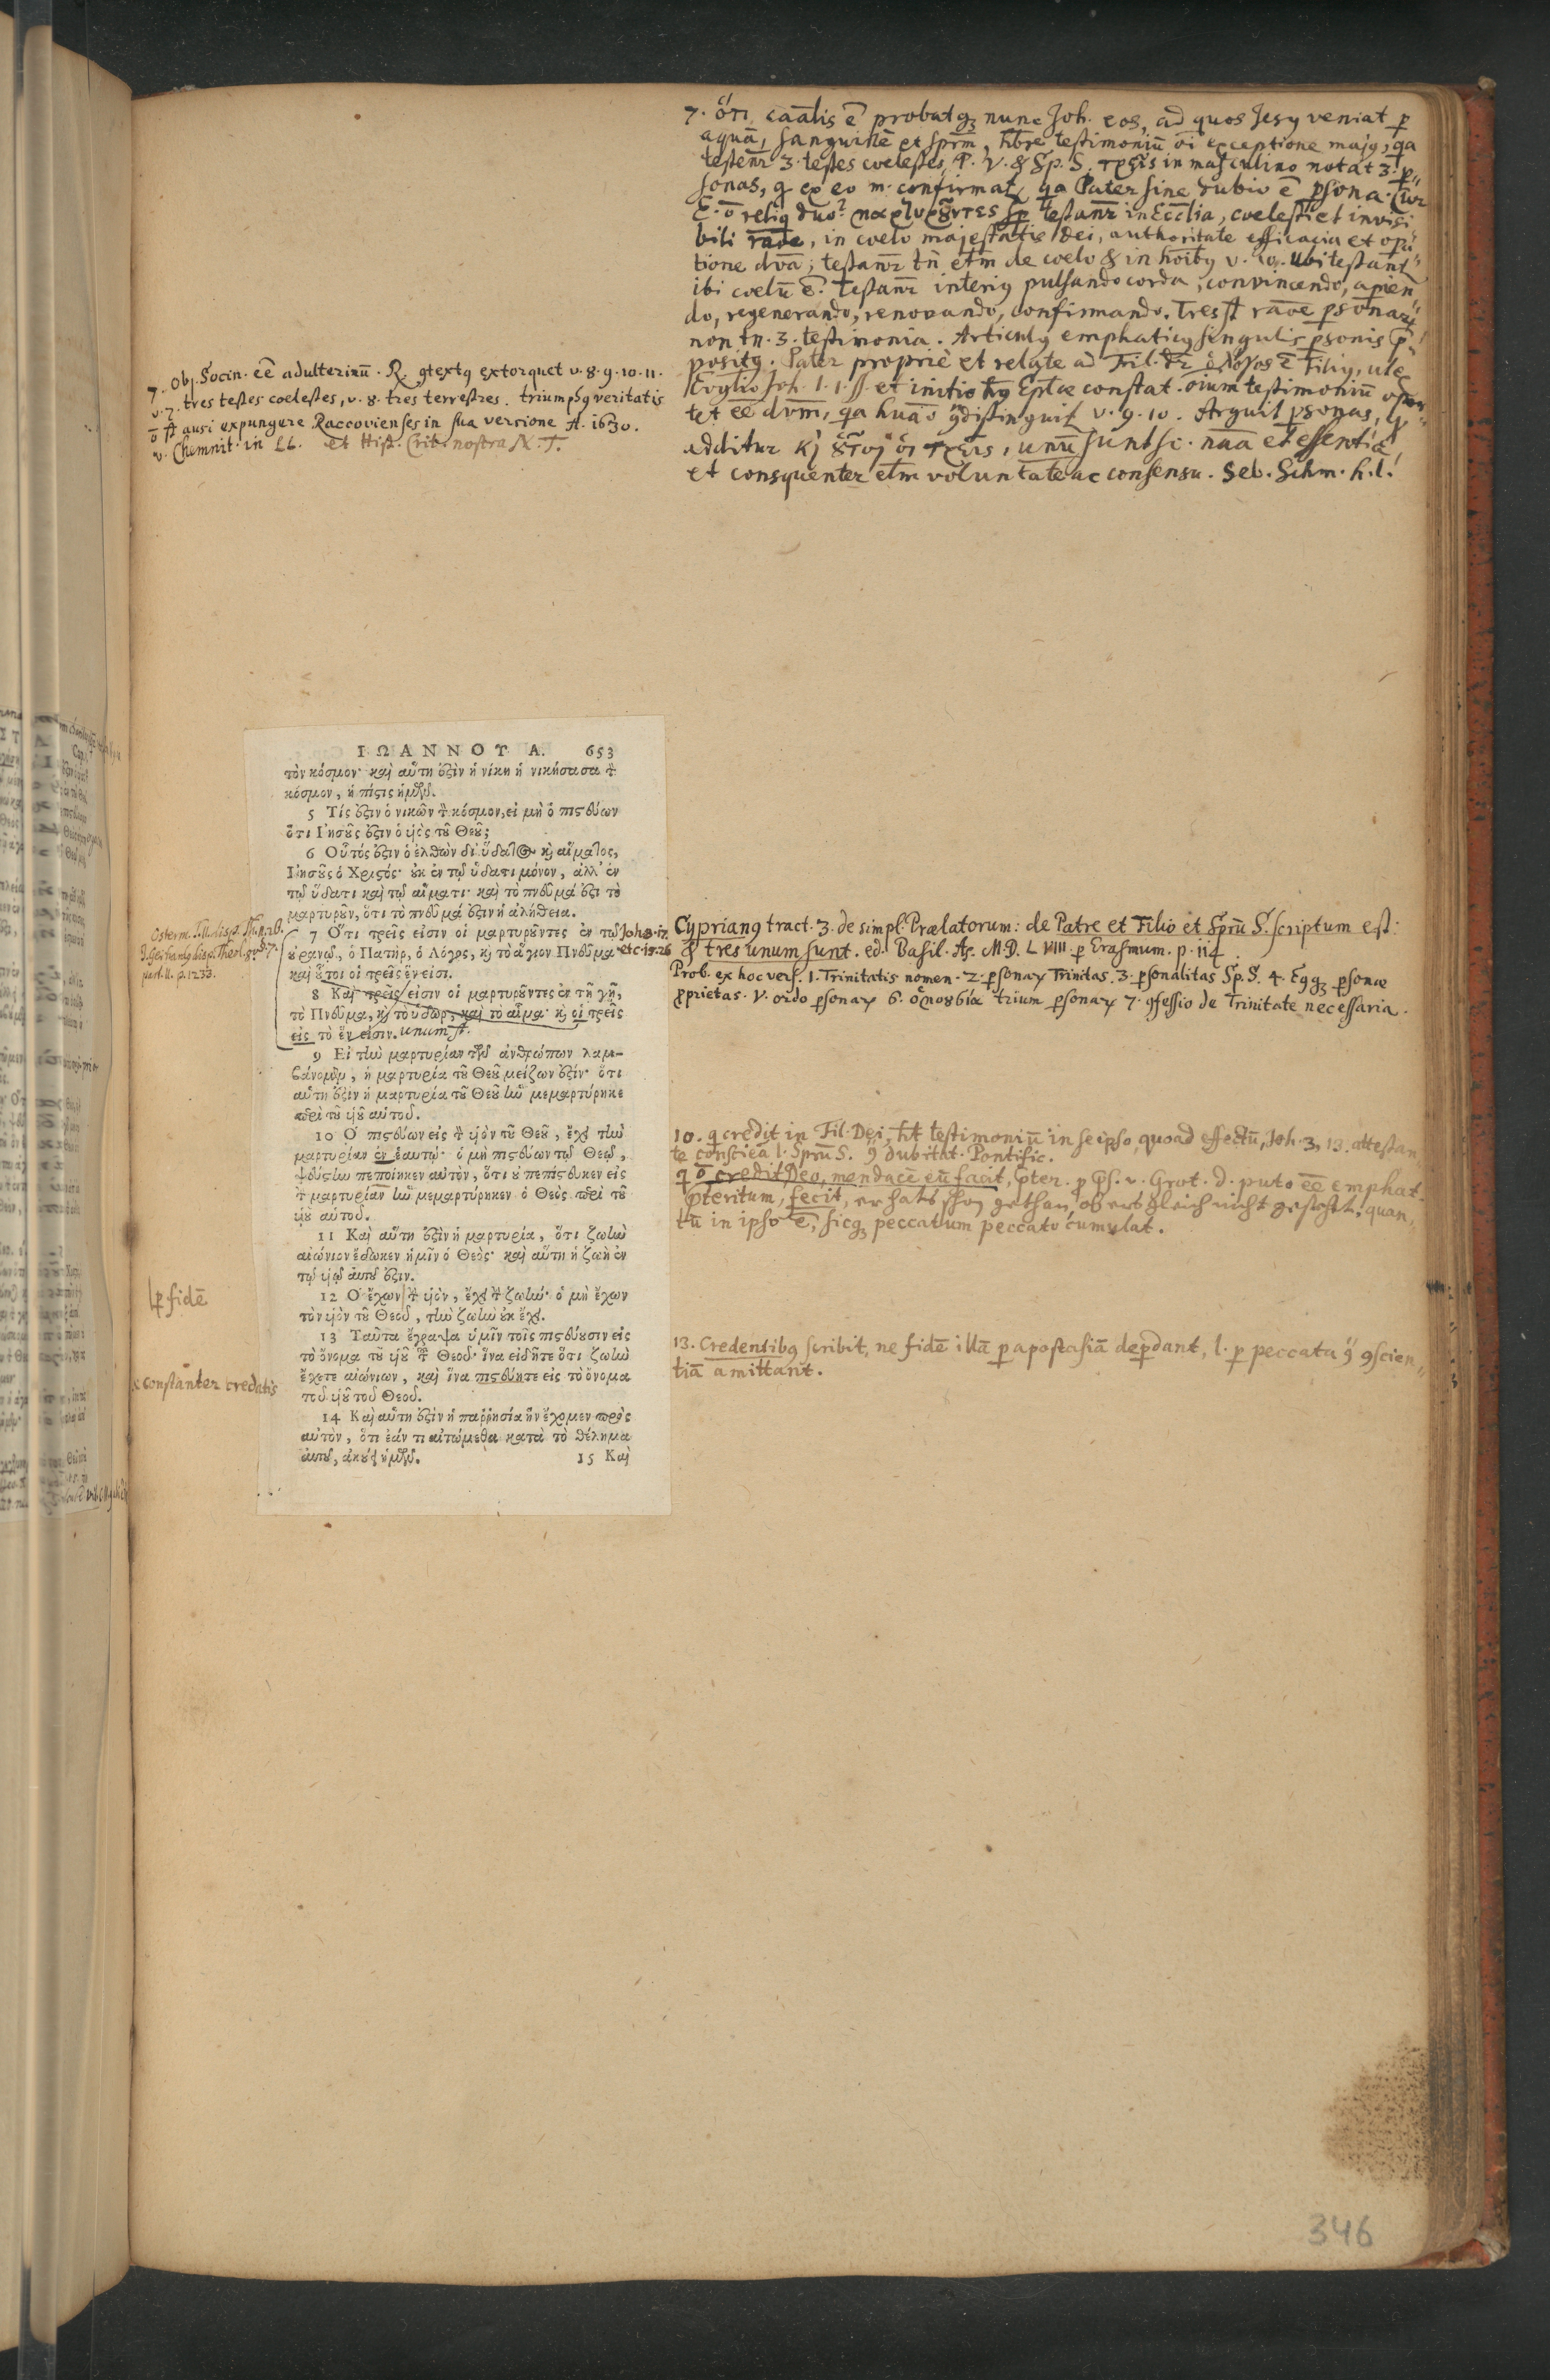 7. ὅτι caālis ē probatqꝫ nunc Joh. eos, ad quos Jesꝰ veniat ꝑ
aquā, sanguinē et sprm̄, hr̄e testimoniū oi exceptione majꝰ, qa
testenr̄ 3. testes coelestes, P. V. & Sp. S. τρεῖς in masculino notat 3. ꝑ⸗
sonas, q ex eo m. confirmat, qa Pater sine dubio ē ꝑsona. Cur
E. ō reliq duo? μαρτυροῦντες testanr̄ in Eccl̄ia, coelesti et invisi
bili rāoe, in coelo majestatis Dei, authoritate efficacia et opa⸗
tione dvā; testanr̄ tn̄ etm̄ de coelo & in hoībꝰ v. 10. Ubi testanr̄
ibi coelū ē. Testanr̄ interiꝰ pulsando corda, convincendo, apien⸗
do, regenerando, renovando, confirmando. Tres st̄ rāoe ꝑsonarū
non tn̄. 3. testimonia. Articulꝰ emphaticꝰ singulis ꝑsonis p̄⸗
positꝰ. Pater propriè et relate ad Fil. dr̄ ὁ λόγος ē Filiꝰ, ut ex
Evglio Joh. 1. 1. ss et initio hꝰ Ep̄læ constat. oium testimoniū opor⸗
tet ēē dvm̄, qa huāo ꝯdistinguit v. 9. 10. Arguit ꝑsonas, q
additur κ̀ ȣ̃τοι οἱ τρεῖς, unū sunt sc. nāa et essentiâ,
et consquenter etm̄ voluntate ac consensu. Seb. Schm. h. l.
7. Obj. Socin. ēē adulterinū. R. ꝯtextꝰ extorquet v. 8. 9. 10. 11.
v. 7. tres testes coelestes, v. 8. tres terrestres. triumphꝰ veritatis
ō st̄ ausi expungere Raccovienses in sua versione A. 1630.
v. Chemnit. in LL. et Hist. Crit. nostra N. T.
ΙΩΑΝΝΟΥ Α. 653
τὸν κόσμον· καὶ αὕτη ἐστὶν ἡ νίκη ἡ νικήσασα τ̀
κόσμον, ἡ πίστις ἡμῶν.
5 Τίς ἐστιν ὁ νικῶν τ̀ κόσμον, εἰ μὴ ὁ πιστεύων
ὅτι Ἰησοῦς ἐστιν ὁ υἱὸς τοῦ Θεοῦ;
6 Οὗτός ἐστιν ὁ ἐλθὼν δι' ὕδατος κ̀ αἵματος,
Ἰησοῦς ὁ Χριστός· ȣκ ἐν τῷ ὕδατι μόνον, ἀλλ' ἐν
τῷ ὕδατι καὶ τῷ αἵματι· καὶ τὸ πνεῦμά ἐστι τὸ
μαρτυροῦν, ὅτι τὸ πνεῦμά ἐστιν ἡ ἀλήθεια.
7 Ὅτι τρεῖς εἰσιν οἱ μαρτυροῦντες ἐν τῷ Joh. 8. 17.
ȣρανῷ, ὁ Πατὴρ, ὁ Λόγος, κ̀ τὸ ἅγιον Πνεῦμα· et c. 15. 26
καὶ ȣ̃τοι οἱ τρεῖς ἕν εἰσι.
8 Καὶ τρεῖς εἰσιν οἱ μαρτυροῦντες ἐν τῇ γῇ,
τὸ Πνεῦμα, κ̀ τὸ ὕδωρ, καὶ τὸ αἷμα· κ̀ οἱ τρεῖς
εἰς τὸ ἕν εἰσιν. unum st̄.
9 Εἰ τὴν μαρτυρίαν τῶν ἀνθρώπων λαμ-
βάνομεν, ἡ μαρτυρία τοῦ Θεοῦ μείζων ἐστίν· ὅτι
αὕτη ἐστὶν ἡ μαρτυρία τοῦ Θεοῦ ἣν μεμαρτύρηκε
περὶ τοῦ υἱοῦ αὐτοῦ.
10 Ὁ πιστεύων εἰς τ̀ υἱὸν τοῦ Θεοῦ, ἔχει τὴν
μαρτυρίαν ἐν ἑαυτῷ· ὁ μὴ πιστεύων τῷ Θεῷ,
ψεύστην πεποίηκεν αὐτὸν, ὅτι ȣ πεπίστευκεν εἰς
τ̀ μαρτυρίαν ἣν μεμαρτύρηκεν ὁ Θεὸς περὶ τοῦ
υἱοῦ αὐτοῦ.
11 Καὶ αὕτη ἐστὶν ἡ μαρτυρία, ὅτι ζωὴν
αἰώνιον ἔδωκεν ἡμῖν ὁ Θεός· καὶ αὕτη ἡ ζωὴ ἐν
τῷ υἱῷ αὐτοῦ ἐστιν.
12 Ὁ ἔχων τ̀ υἱὸν, ἔχει τ̀ ζωήν· ὁ μὴ ἔχων
τὸν υἱὸν τοῦ Θεοῦ, τὴν ζωὴν ȣκ ἔχει.
13 Ταῦτα ἔγραψα ὑμῖν τοῖς πιστεύουσιν εἰς
τὸ ὄνομα τοῦ υἱοῦ τ̃ Θεοῦ· ἵνα εἰδῆτε ὅτι ζωὴν
ἔχετε αἰώνιον, καὶ ἵνα πιστεύητε εἰς τὸ ὄνομα
τοῦ υἱοῦ τοῦ Θεοῦ.
14 Καὶ αὕτη ἐστὶν ἡ παῤῥησία ἣν ἔχομεν πρὸς
αὐτὸν, ὅτι ἐάν τι αἰτώμεθα κατὰ τὸ θέλημα
αὐτοῦ, ἀκούει ἡμῶν. 15 Καὶ
part. II. p. 1233.
ꝑ fidē
constanter credatis
Cyprianꝰ tract. 3. de simpl. Prælatorum: de Patre et Filio et Sprū S. scriptum est:
& tres unum sunt. ed. Basil. Ao. M.D.LVIII. ꝑ Erasmum. p. 114
Prob. ex hoc vers. 1. Trinitatis nomen. 2. ꝑsonaꝝ Trinitas. 3. ꝑsonalitas Sp. S. 4. ꝑsonæ
ꝓprietas. V. ordo ꝑsonaꝝ 6. ὁμοȣσία trium ꝑsonaꝝ 7. ꝯfessio de Trinitate necessaria.
10. q credit in Fil. Dei, ht̄ testimoniū in se ipso, quoad effectū, Joh. 3, 13. attestan
te consciēa l. Sprū S. dubitat. Pontific.
q ō credit Deo, mendacē eū facit, p̄ter. ꝓ p̄s. v. Grot. d. puto ēē emphat.
p̄teritum, fecit, er hats schon gethan, ob ers gleich nicht gestehet, quan⸗
tū in ipso ē, sicqꝫ peccatum peccato cumulat.
13. Credentibꝰ scribit, ne fidē illā ꝑ apostasiā deꝑdant, l. ꝑ peccata ꝯ ꝯscien⸗
tiā amittant.
346